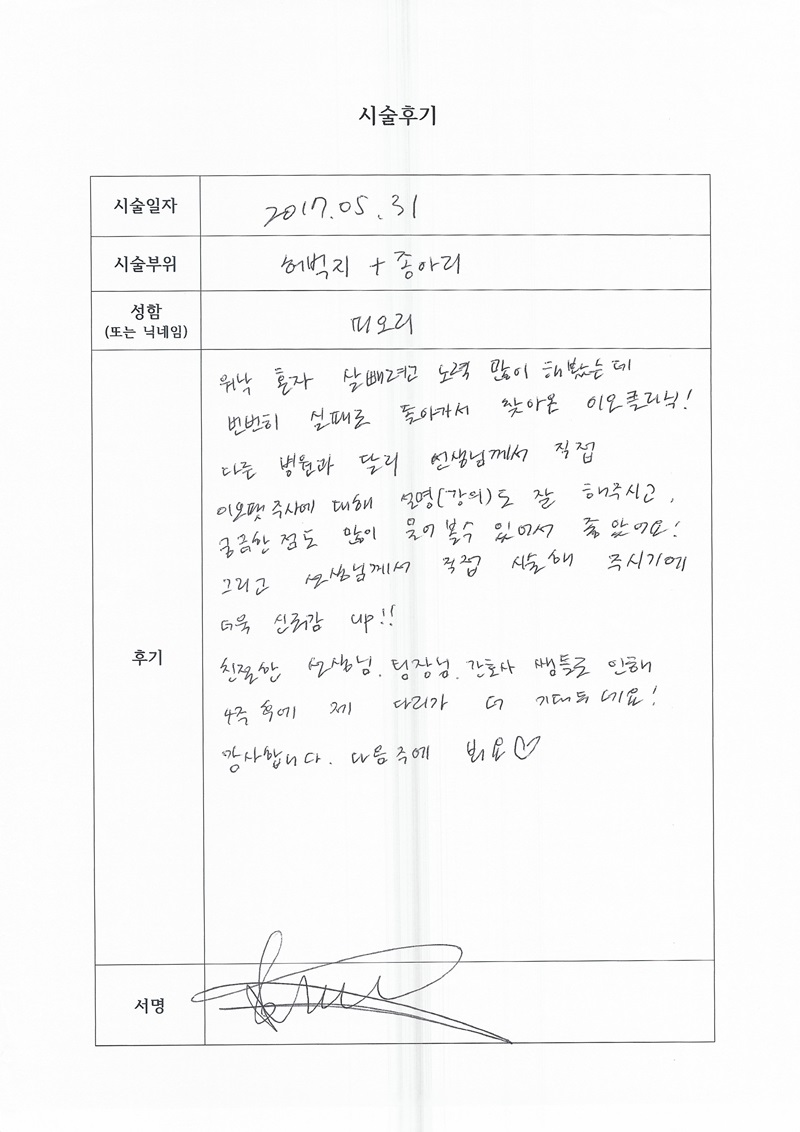 시술후기
시술일자 2017.05.31
시술부위 허벅지 + 종아리
성함
(또는 닉네임) 미오리
후기
워낙 혼자 살빼려고 노력 많이 해봤는데
번번히 실패로 돌아가서 찾아온 이오클리닉!
다른 병원과 달리 선생님께서 직접
이오팻주사에 대해 설명(강의)도 잘 해주시고,
궁금한 점도 많이 물어볼수 있어서 좋았어요!
그리고 선생님께서 직접 시술해 주시기에
더욱 신뢰감 up!!
친절한 선생님, 팀장님, 간호사 쌤들로 인해
4주 후에 제 다리가 더 기대되네요!
감사합니다. 다음주에 뵈요♡
서명